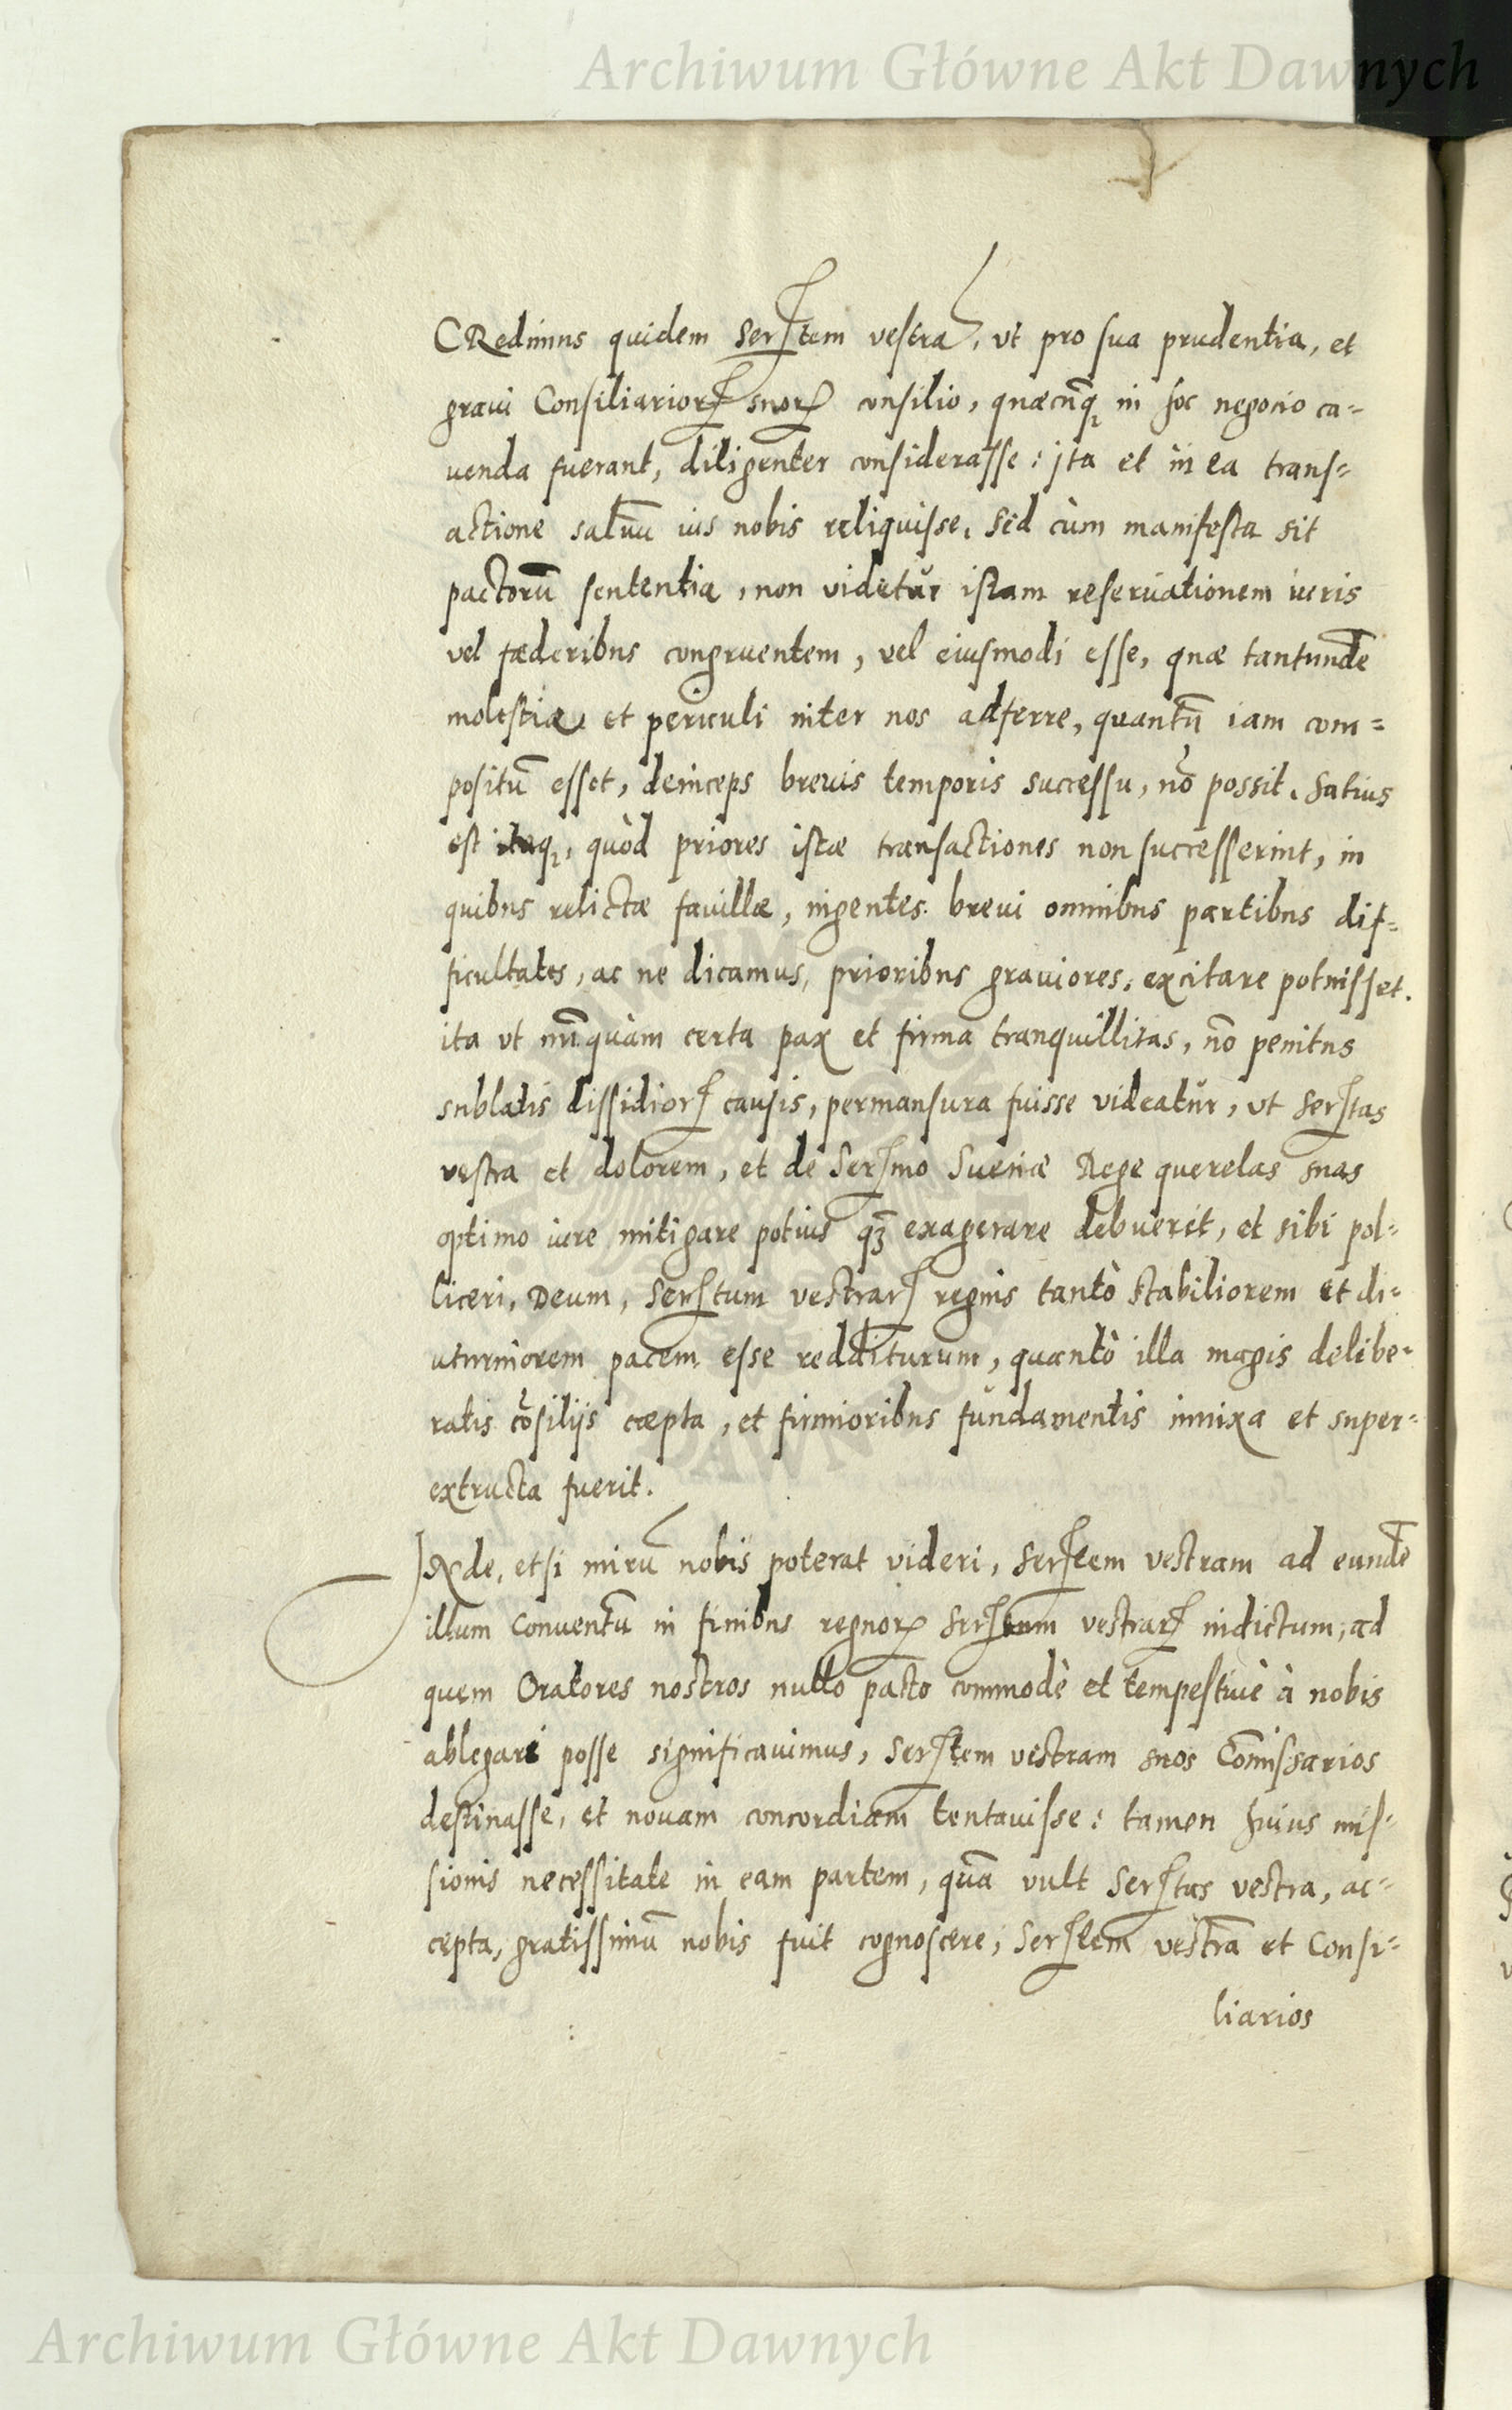 Archiwum Główne Akt Dawnych
CRedimus quidem Serſtem vestrā, vt pro sua prudentia, et
graui Consiliarioꝝ suoꝝ consilio, quæcūq; in hoc negocio ca-
uenda fuerant, diligenter considerasse: jta et in ea trans-
actione saluū ius nobis reliquisse. Sed cùm manifesta sit
pactorū sententia, non videtur istam reseruationem iuris
vel fœderibus congruentem, vel eiusmodi esse, quæ tantundē
molestiæ et periculi inter nos adferre, quantū iam com-
positū esset, deinceps breuis temporis successu, nō possit. Satius
est itaq;, quòd priores istæ transactiones non successerint, in
quibus relictæ fauillæ, ingentes breui omnibus partibus dif-
ficultates, ac ne dicamus, prioribus grauiores, excitare potuisset.
ita vt nūquàm certa pax et firma tranquillitas, nō penitus
sublatis dissidioꝝ causis, permansura fuisse videatur, vt Serſtas
vestra et dolorem, et de Serſmo Sueciæ Rege querelas suas
optimo iure mitigare potius qꝫ exagerare debuerit, et sibi pol-
liceri, Deum, Serſtum vestraꝝ regnis tantò stabiliorem et di-
uturniorem pacem esse redditurum, quantò illa magis delibe-
ratis cōsilijs cœpta, et firmioribus fundamentis innixa et super-
extructa fuerit.
INde, etsi mirū nobis poterat videri, Serſtem vestram ad eundē
illum Conuentū in finibus regnoꝝ Serſtum vestraꝝ indictum, ad
quem Oratores nostros nullo pacto commodè et tempestiuè à nobis
ablegari posse significauimus, Serſtem vestram suos Cōmissarios
destinasse, et nouam concordiam tentauisse: tamen huius mis-
sionis necessitate in eam partem, quā vult Serſtas vestra, ac-
cepta, gratissimū nobis fuit cognoscere, Serſtem vestrā et Consi-
liarios
Archiwum Główne Akt Dawnych